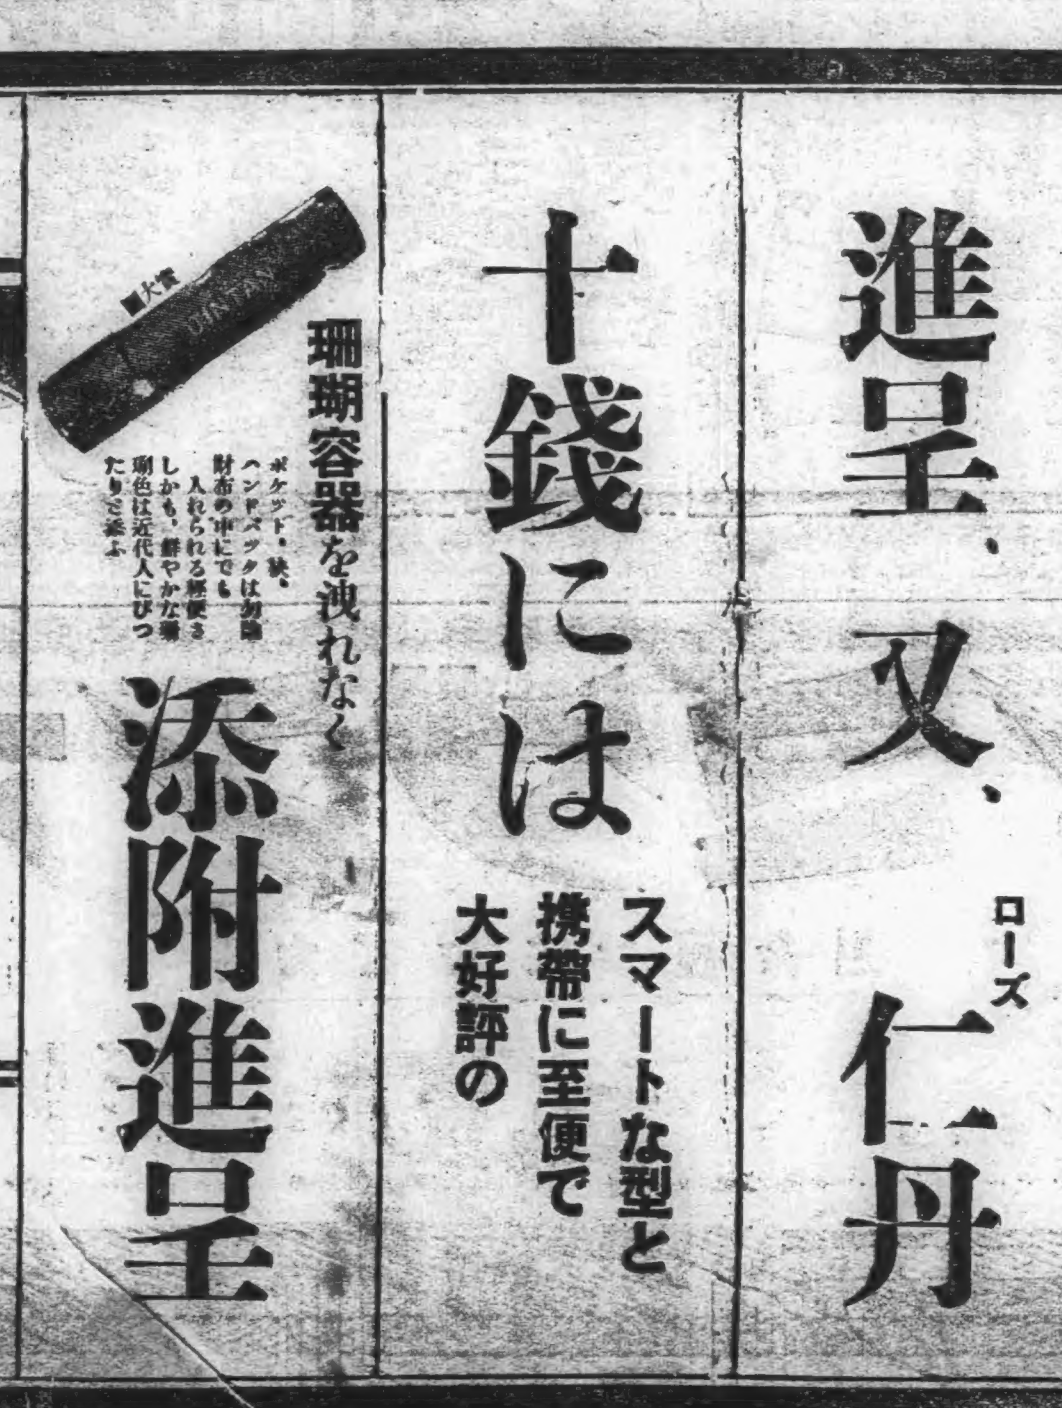 進呈、又、
ローズ
仁丹
十錢には
スマートな型と
携帶に至便で
大好評の
珊瑚容器を洩れなく
JINTAN
大賞
ポケット、袂、
ハンドバックは勿論
財布の中にでも
入れられる輕便さ
しかも、鮮やかな珊
瑚色は近代人にぴつ
たりで添ふ
添附進呈